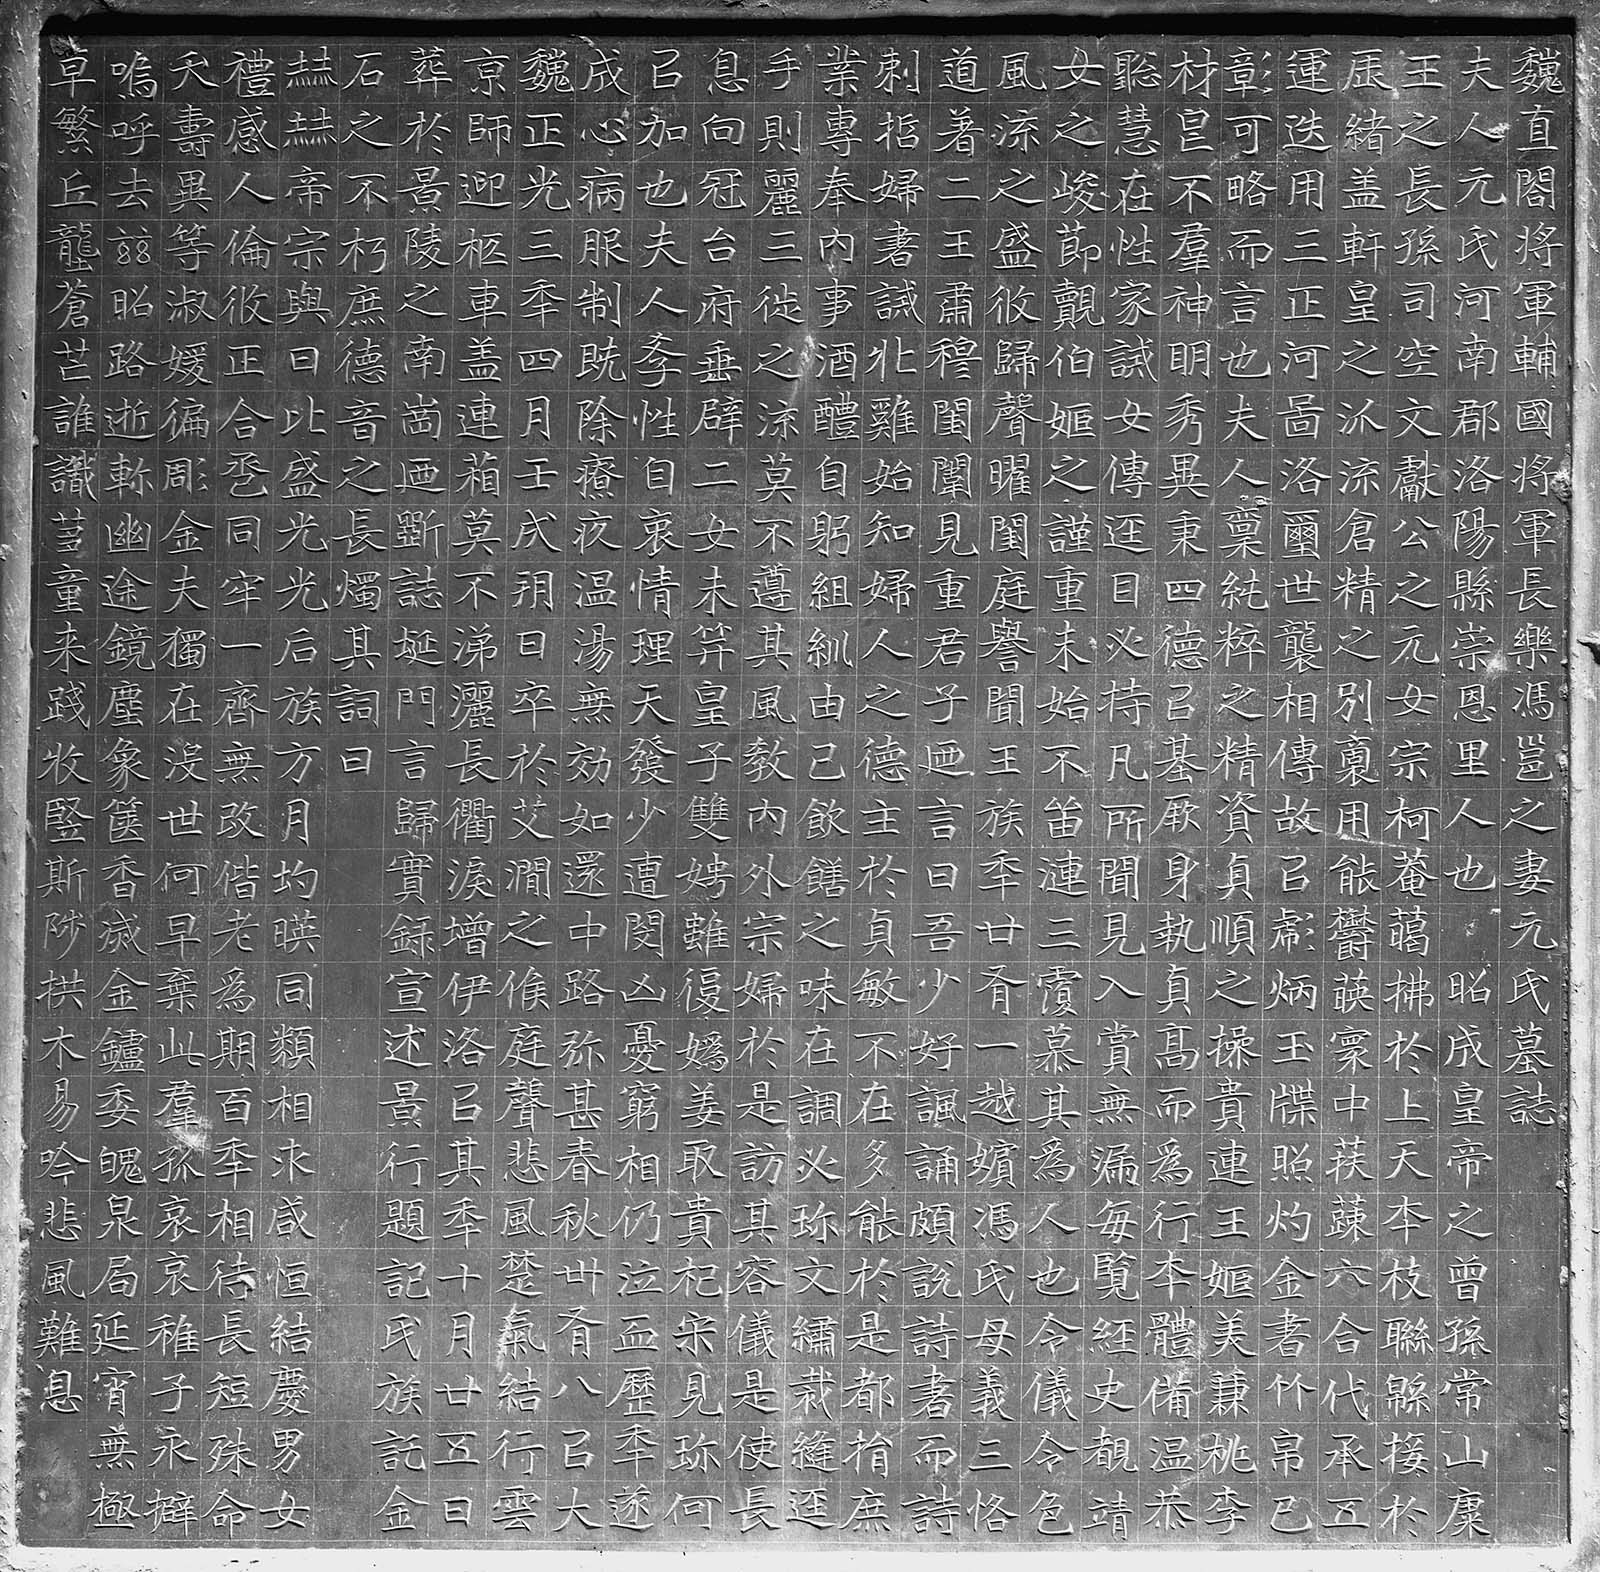 魏直閤將軍輔國將軍長樂馮邕之妻元氏墓誌
夫人元氏河南郡洛陽縣崇恩里人也 昭成皇帝之曾孫常山康
王之長孫司空文獻公之元女宗柯菴藹拂於上天夲枝聯緜接於
辰緒盖軒皇之派流倉精之別裛用能欝䕃寰中䓋蔬六合代承五
運迭用三正河啚洛璽世襲相傳故㠯彪炳玉牒照灼金書竹帛已
彰可略而言也夫人稟純粹之精資貞順之操貴連王姬美兼桃李
材皃不羣神明秀異秉四德㠯基厥身執真高而為行夲體備温恭
聦慧在性家誡女傳逕目必持凡所聞見入賞無漏每覽經史覩靖
女之峻節覿伯姬之謹重未始不留漣三覆慕其為人也令儀令色
風流之盛攸歸聲曜閨庭譽聞王族秊廿有一越嬪馮氏母義三恪
道著二王肅穆閨闈見重君子廼言曰吾少好諷誦頗說詩書而詩
刺哲婦書誡牝雞始知婦人之德主於貞敏不在多能於是都捐庶
業專奉內事酒醴自躬組紃由己飲饍之味在調必珎文繡裁縫逕
手則麗三徒之流莫不遵其風敎內外宗婦於是訪其容儀是使長
息向冠台府垂辟二女未笄皇子雙娉雖復媯姜取貴杞宋見珎何
㠯加也夫人孝性自衷情理天發少遭閔凶憂窮相仍泣血歷秊遂
成心病服制既除療疾温湯無効如還中路弥甚春秋卌有八㠯大
魏正光三秊四月壬戌朔日卒於艾澗之候庭聲悲風楚氣結行雲
京師迎柩車盖連葙莫不涕灑長衢淚增伊洛㠯其秊十月廿五日
葬於景陵之南崗廼斲誌埏門言歸實録宣述景行題記氏族託金
石之不朽庶德音之長燭其詞曰
赫赫帝宗與日比盛光光后族方月均暎同類相求咸恒結慶男女
禮感人倫攸正合卺同牢一齊無改偕老為期百秊相待長短殊命
夭壽異等淑媛徧彫金夫獨在沒世何早棄此羣孤哀哀稚子永擗
嗚呼去昭路逝斬幽途鏡塵象篋香滅金鑪委魄泉局延宵無極
草繁丘壟蒼芒誰識童来踐牧豎斯陟拱木易吟悲風難息